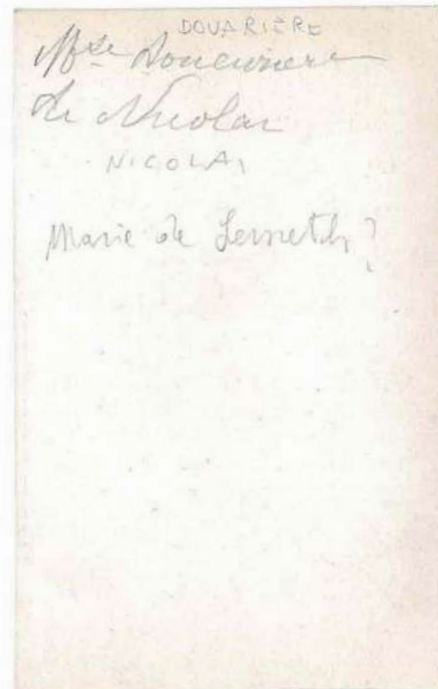 DOUARIÈRE
Mse Douairière
de Nicolai
NICOLAI
Marie de ?